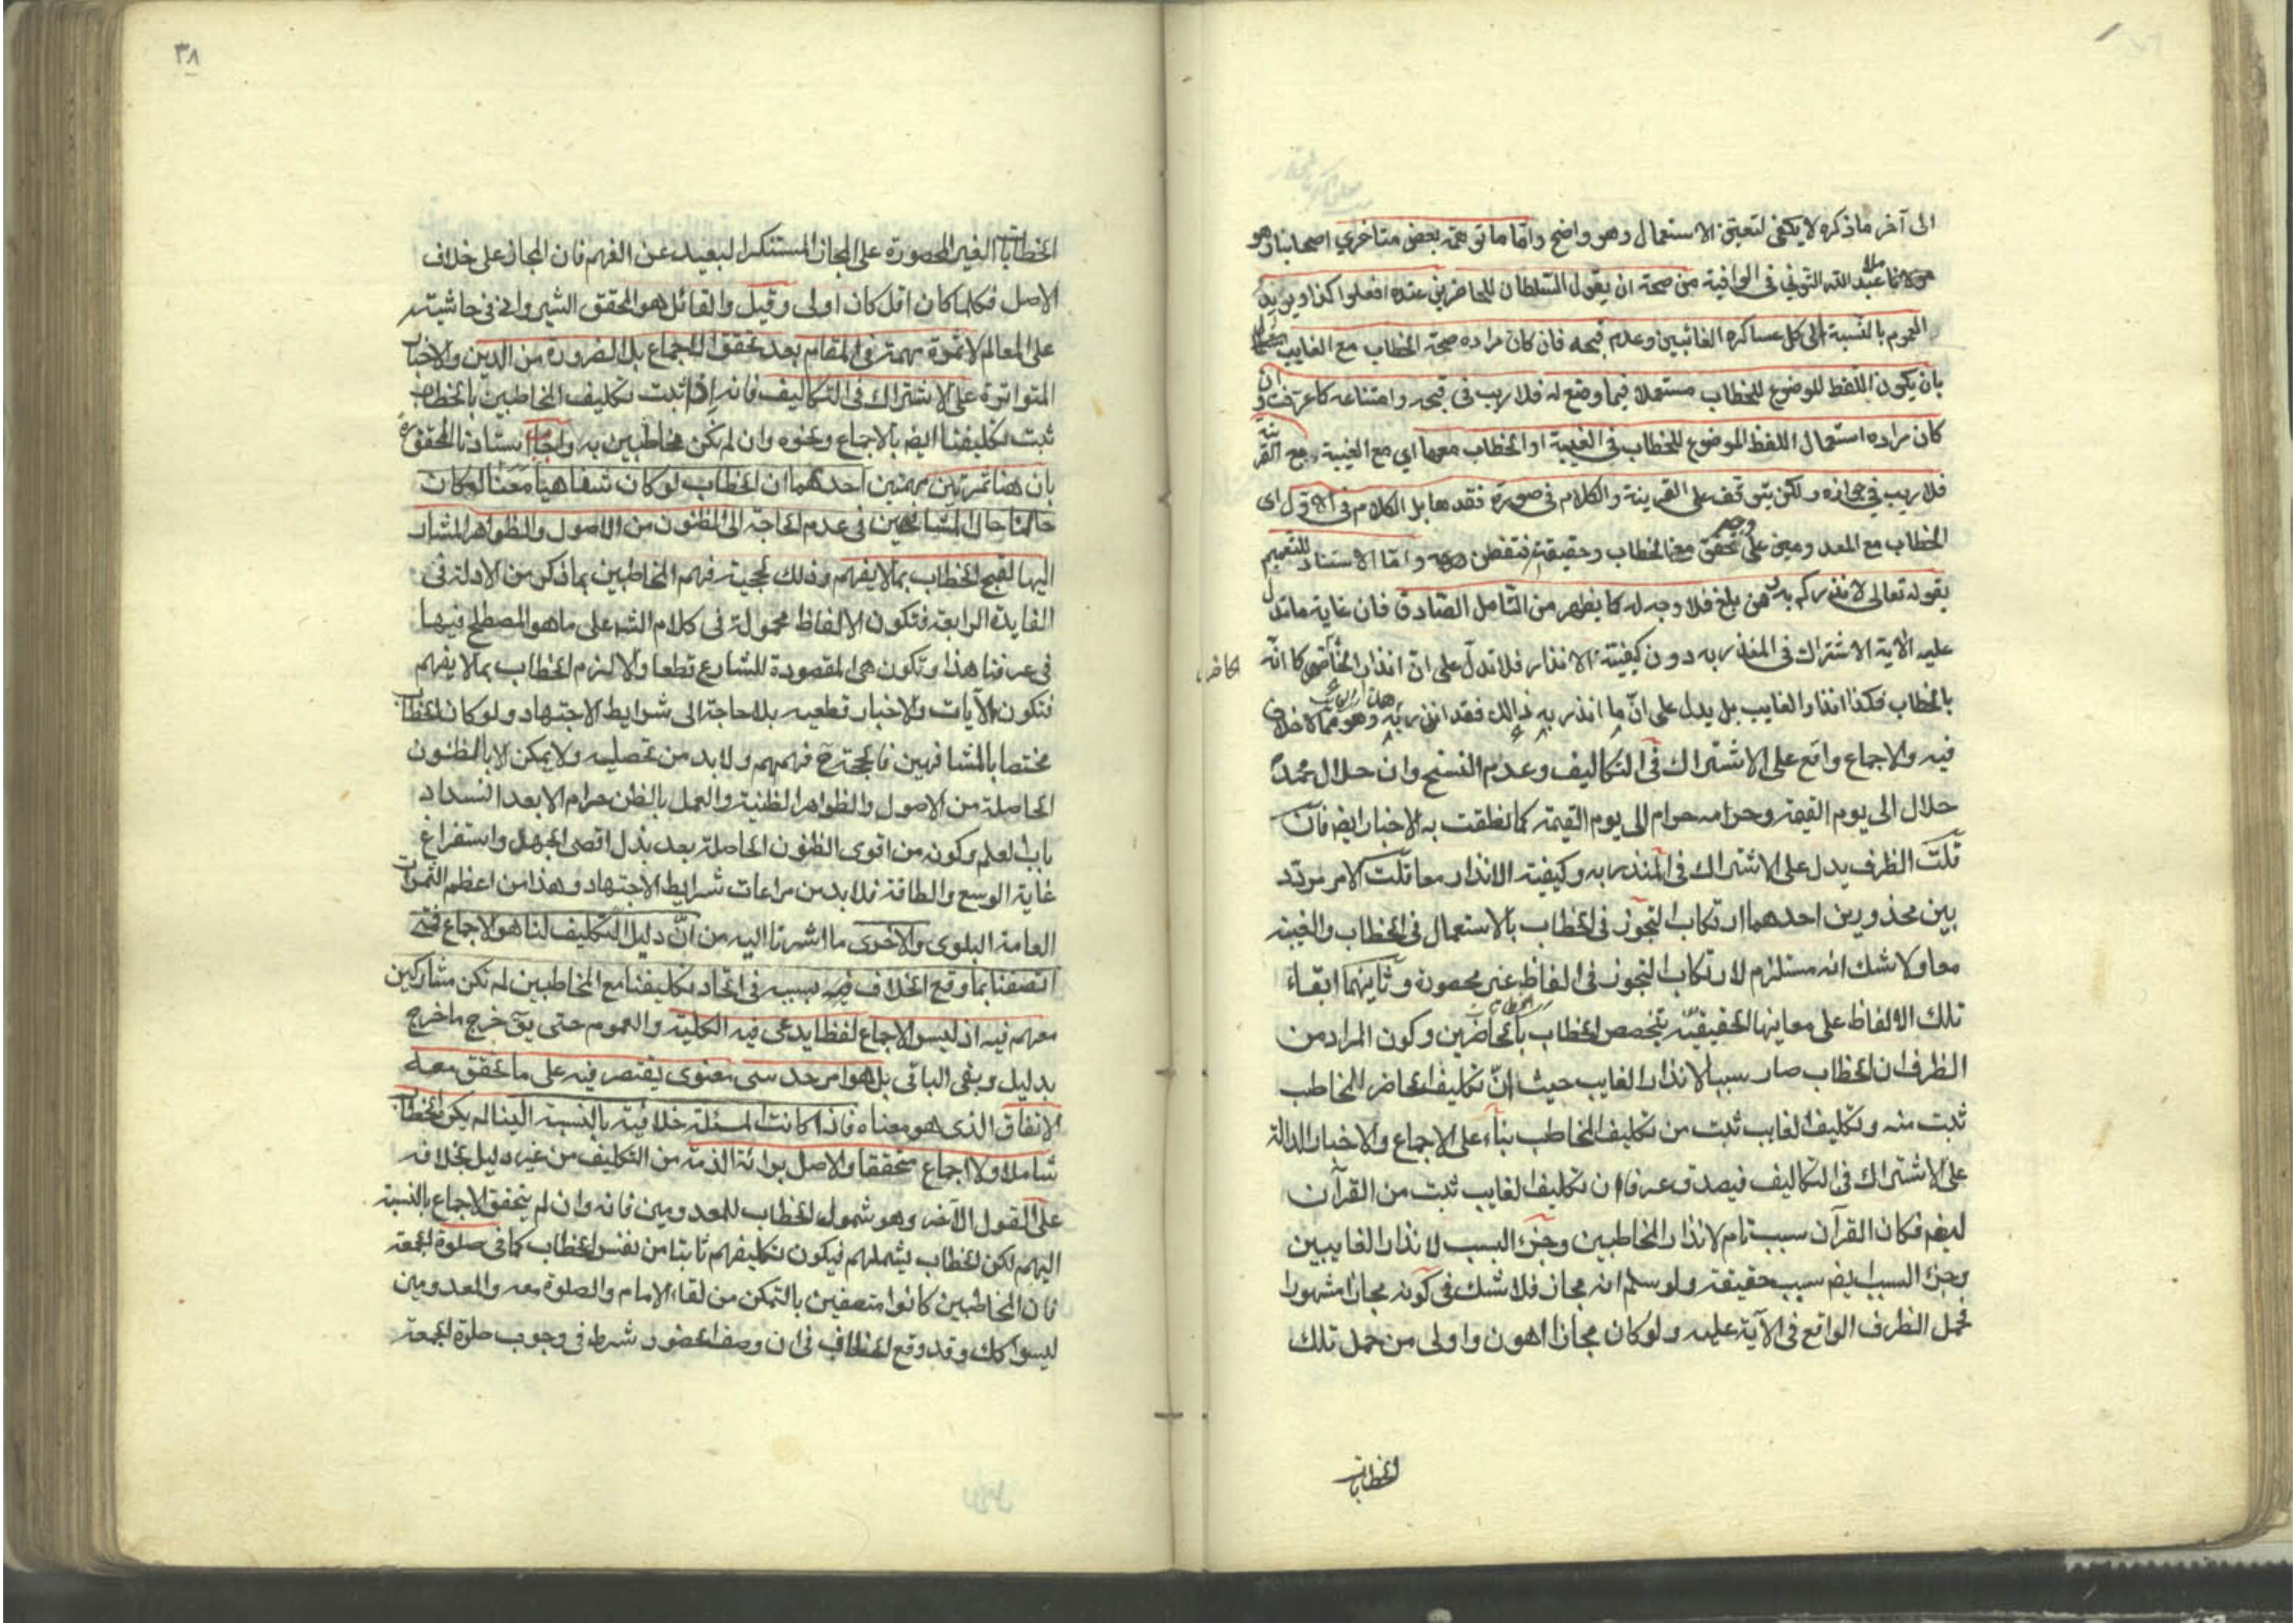 الى آخر ما ذكره لا يكفى لتعيين الاستعمال وهو واضح واما ما توهمه بعض متاخري اصحابنا وهو
مولانا ملا عبد الله التوني في الوافية من صحة ان يقول السلطان للحاضرين عنده افعلوا كذا ويريد
العموم بالنسبة الى كل عساكره الغائبين وعدم قبحه فان كان مراده صحة الخطاب مع الغايب
بان يكون اللفظ الموضوع للخطاب مستعملا فيما وضع له فلا ريب فى قبحه وامتناعه كما عرفت وان
كان مراده استعمال اللفظ الموضوع للخطاب في الغيبة او الخطاب معها اي مع الغيبة مع القرينة
فلا ريب في جوازه ولكن يتوقف على القرينة والكلام فى صورة فقدها بل الكلام فى الاول اى
الخطاب مع المعدومين على وجه تحقق معنى الخطاب وحقيقته فتفطن واما الاستناد للتعميم
بقوله تعالى لانذركم به ومن بلغ فلا وجه له كما يظهر من التامل الصادق فان غاية ما تدل
عليه الآية الاشتراك فى المنذر به دون كيفية الانذار فلا تدل على ان انذار الحاضر كما انه
الحاضر
بالخطاب فكذا انذار الغايب بل يدل على ان ما انذر به ذلك فقد انذر به هذا الغايب وهو مما لا خلاف
فيه والاجماع واقع على الاشتراك فى التكاليف وعدم النسخ وان حلال محمد
حلال الى يوم القيمة وحرامه حرام الى يوم القيمة كما نطقت به الاخبار ايضا فان
قلت الظرف يدل على الاشتراك فى المنذر به وكيفية الانذار معا قلت الامر مردد
بين محذورين احدهما ارتكاب التجوز فى الخطاب بالاستعمال فى الخطاب والغيبة
معا ولا شك انه مستلزم لارتكاب التجوز فى الفاظ غير محصورة وثانيهما ابقاء
تلك الالفاظ على معاينها الحقيقيّة بتخصص الخطاب الخطابات بالحاضرين وكون المراد من
الظرف ان الخطاب صار سببا لانذار الغايب حيث انّ تكليف الحاضر المخاطب
ثبت منه وتكليف الغايب ثبت من تكليف المخاطب بناء على الاجماع والاخبار الدالة
على الاشتراك فى التكاليف فيصدق عرفا ان تكليف الغايب ثبت من القرآن
ايضا فكان القرآن سبب تام لانذار المخاطبين وجزء السبب لانذار الغايبين
وجزء السبب ايضا سبب حقيقة ولو سلم انه مجاز فلا شك فى كونه مجازا مشهورا
فحمل الظرف الواقع فى الآية عليه ولو كان مجازا اهون واولى من حمل تلك
الخطابات
٣٨
الخطابات الغير المحصورة على المجاز المستنكر البعيد عن الفهم فان المجاز على خلاف
الاصل فكلما كان اقل كان اولى وقيل والقائل هو المحقق الشيروانى فى حاشيته
على المعالم لا ثمرة مهمة فى المقام بعد تحقق الاجماع بل الضرورة من الدين والاخبار
المتواترة على الاشتراك فى التكاليف فانه اذا ثبت تكليف المخاطبين بالخطاب
ثبت تكليفنا ايضا بالاجماع ونحوه وان لم نكن مخاطبين به واجاب استاذنا المحقق ره
بان هنا ثمرتين مهمتين احدهما ان الخطاب لو كان شفاهيا معنا لكان
حالنا حال المشافهين فى عدم الحاجة الى الظنون من الاصول والظواهر المشار
اليها لقبح الخطاب بما لا يفهم وذلك لحجية فهم المخاطبين بما ذكر من الادلة فى
الفايدة الرابعة فتكون الالفاظ محمولة فى كلام الشرع على ما هو المصطلح فيها
فى عرفنا هذا وتكون هى المقصودة للشارع قطعا والا لزم الخطاب بما لا يفهم
فتكون الآيات والاخبار قطعيه بلا حاجة الى شرايط الاجتهاد ولو كان الخطاب
مختصا بالمشافهين فالحجة ح فهمهم ولا بد من تحصليه ولا يمكن الا بالظنون
الحاصلة من الاصول والظواهر الظنية والعمل بالظن حرام الا بعد انسداد
باب العلم وكونه من اقوى الظنون الحاصلة بعد بذل اقصى الجهد واستفراغ
غاية الوسع والطاقة فلا بد من مراعات شرايط الاجتهاد وهذا من اعظم الثمرات
العامة البلوى والاخرى ما اشرنا اليه من انّ دليل التكليف لنا هو الاجماع فمتى
اتصفنا بما وقع الخلاف فيه بسببه فى اتحاد تكليفنا مع المخاطبين لم نكن مشاركين
معهم فيه اذ ليس الاجماع لفظا يدعى فيه الكلية والعموم حتى يق خرج ما خرج
بدليل وبقى الباقى بل هو امر حدسى معنوى يقتصر فيه على ما تحقق معه
الاتفاق الذى هو معناه فاذا كانت المسئلة خلافية بالنسبة الينا لم يكن الخطاب
شاملا ولا اجماع متحققا والاصل برائة الذمة من التكليف من غير دليل بخلافه
على القول الآخر وهو شمول الخطاب للمعدومين فانه وان لم يتحقق الاجماع بالنسبة
اليهم لكن الخطاب يشملهم فيكون تكليفهم ثابتا من نفس الخطاب كما فى صلوة الجمعة
فان المخاطبين كانوا متصفين بالتمكن من لقاء الامام والصلوة معه والمعدومين
ليسوا كك وقد وقع الخلاف فى ان وصف الحضور شرط فى وجوب صلوة الجمعة